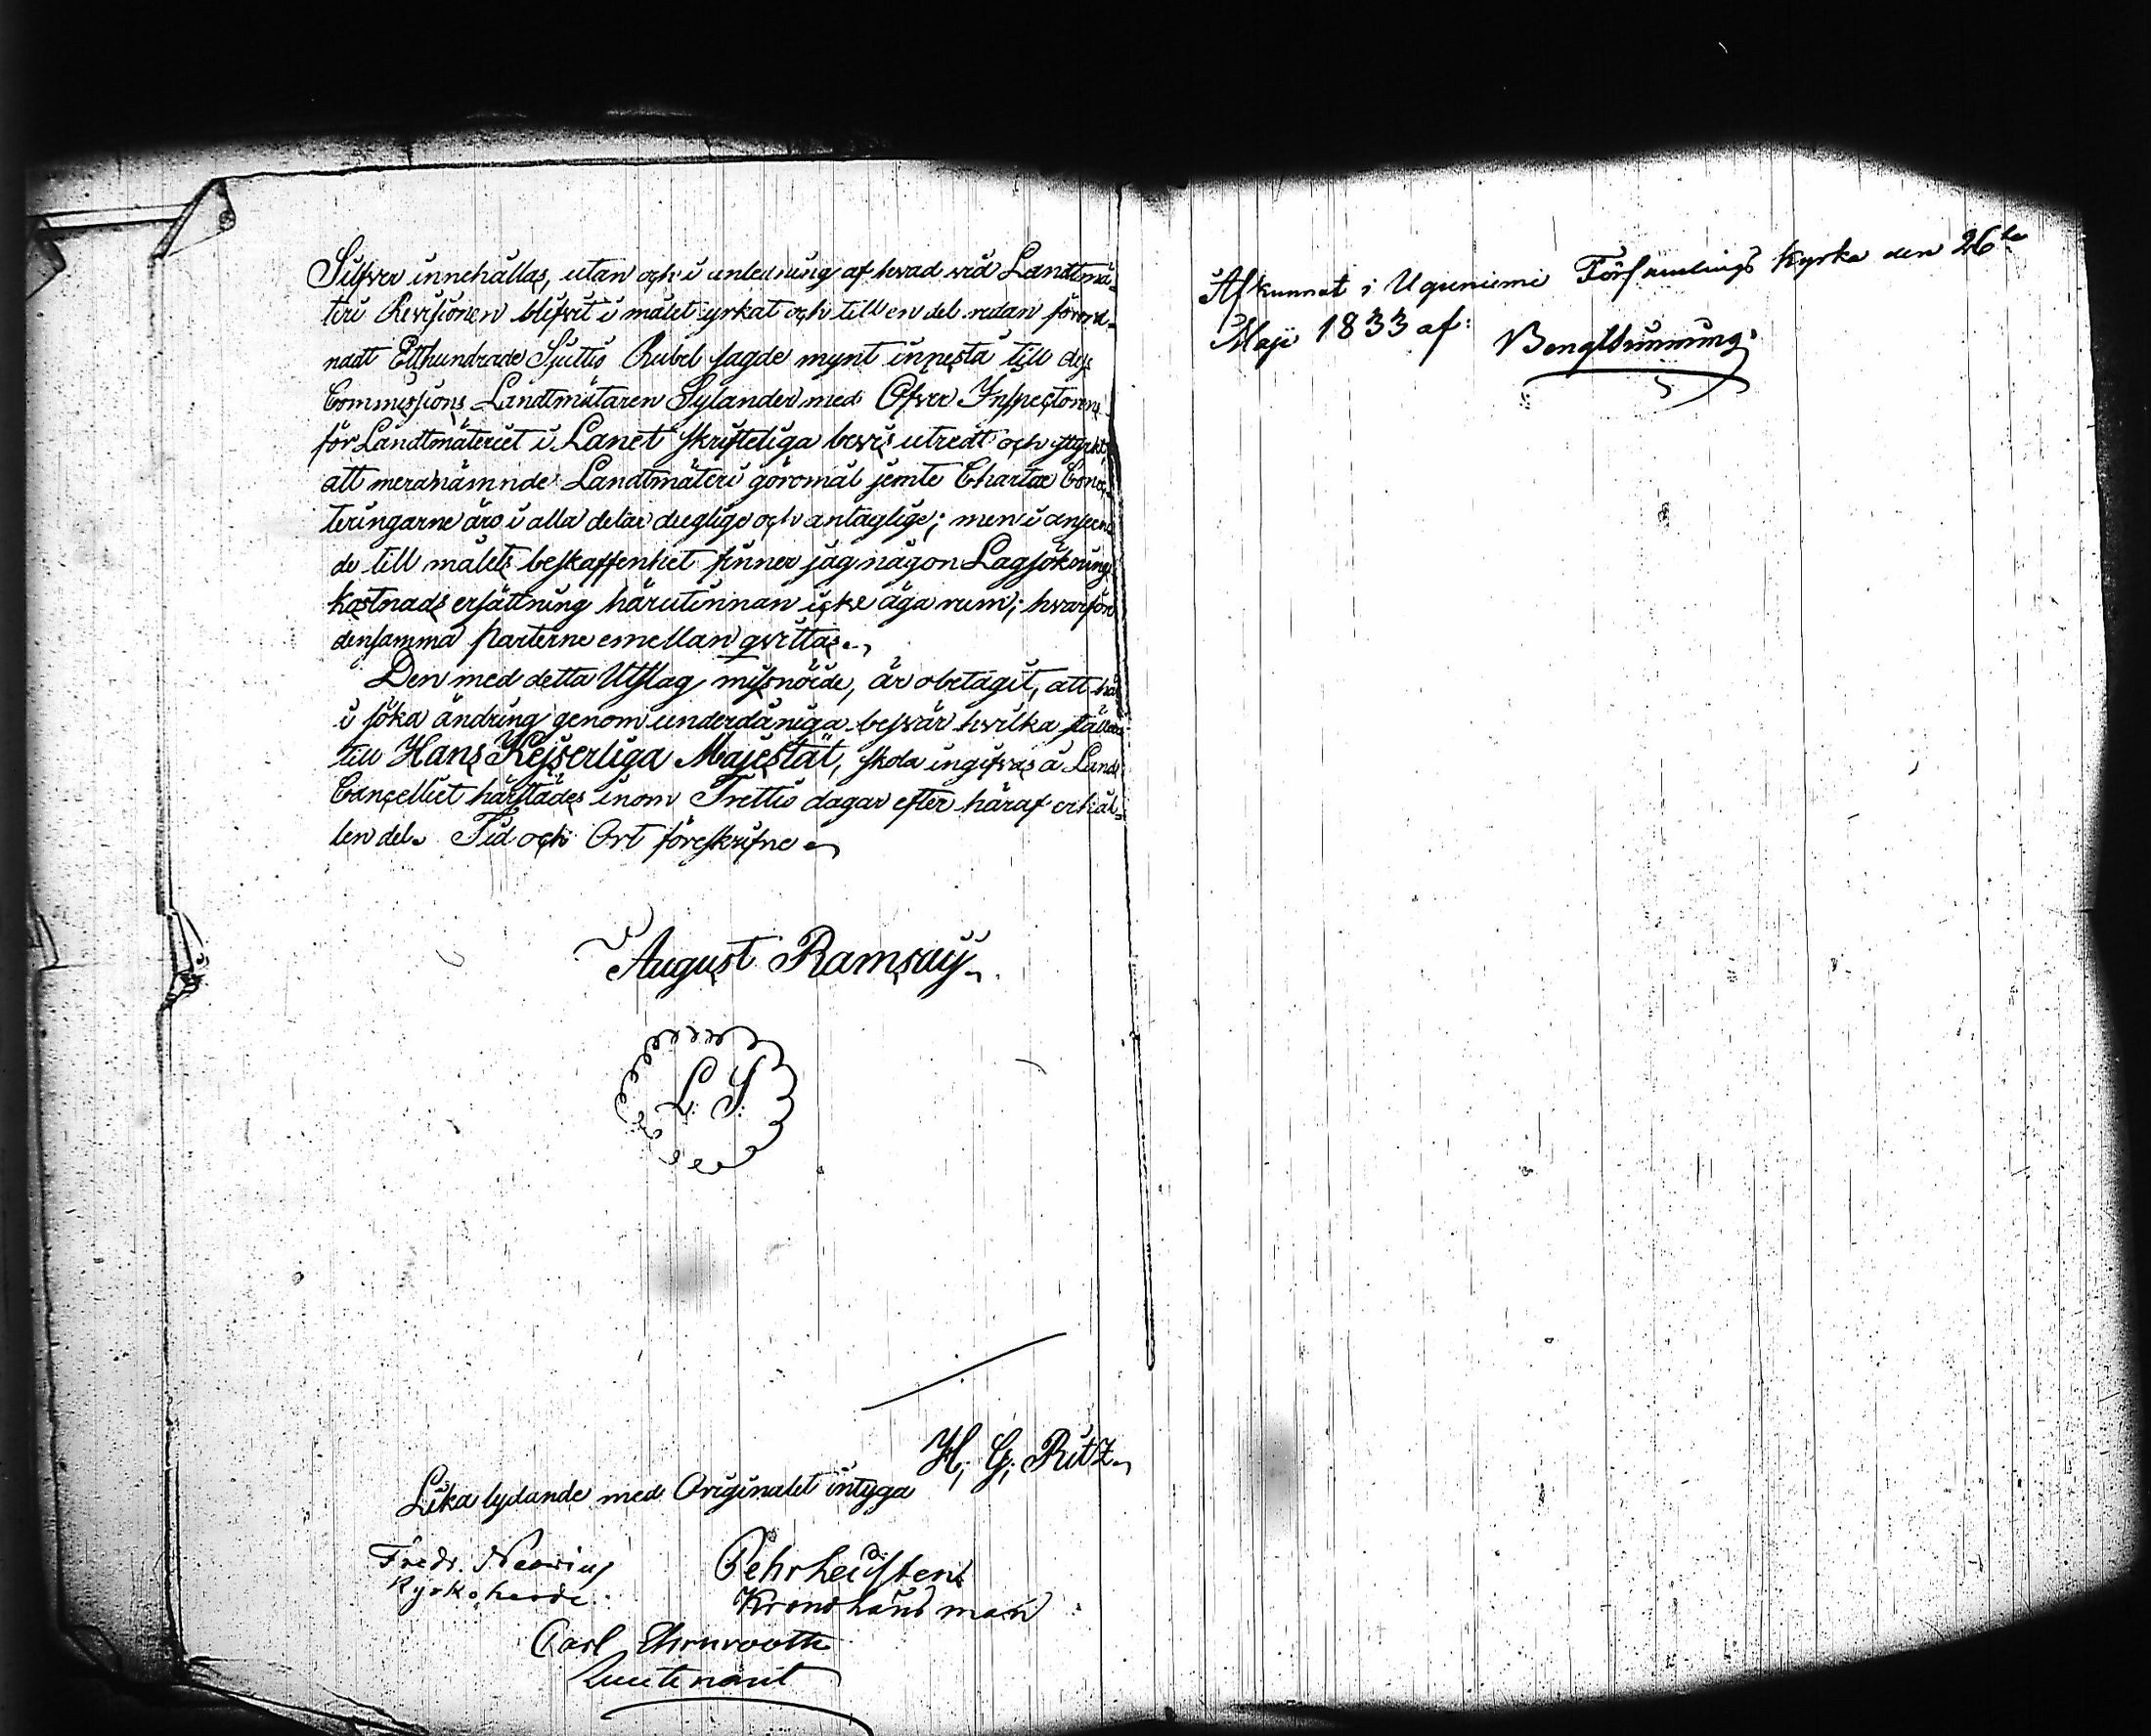 Silfver innehållas, utan och i anledning af hvad vid Landtmä-
teri Revisionen blifvit i målet yrkat och till en del redan förord-
nadt Etthundrade Sjuttio Rubel sagde mynt innestå till dess
Commissions Landtmätaren Sylander med Öfver Inspectorens
för Landtmäteriet i Länet skrifteliga bevis utredt och styrkt,
att meranämnde Landtmäteri göromål jemte Chartæ Conno-
teringarne äro i alla delar dueglige och antaglige; men i anseen-
de till målets beskaffenhet finner jag någon Lagsöknings
kostnads ersättning härutinnan icke äga rum; hvarföre
densamma parterne emellan qvittas.
Den med detta Utslag missnöide, är obetagit, att här
i söka ändring genom underdåniga besvär hvilka ställde
till Hans Kejserliga Majestät, skola ingifvas å Lands
Cancelliet härstädes inom Trettio dagar efter häraf erhål-
len del. Tid och Ort föreskrifne
August Ramsay
L. S.
H. G. Ritz
Lika lydande med Originalet intyga
Fredr. Neovius
Kyrkoherde.
Pehr
Kronolänsman
Carl Ehrnrooth
Lieutenant
Afkunnat i Uguniemi Församlings Kyrka den 26te
Maji 1833 af: